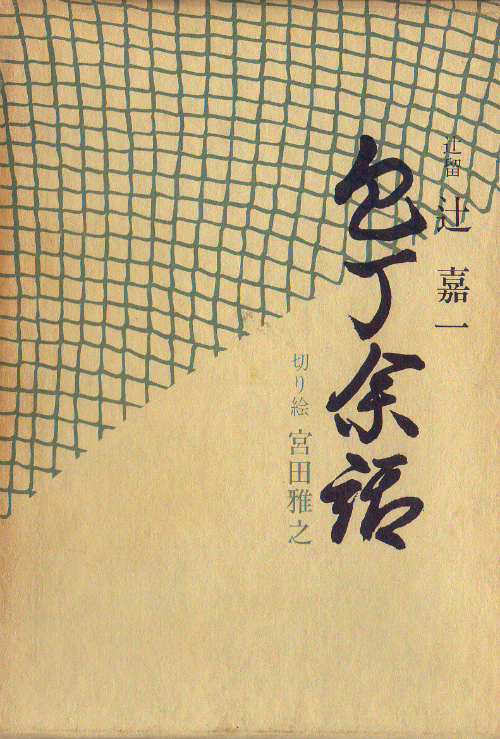 辻留 辻 嘉一
包丁余話
切り絵 宮田雅之